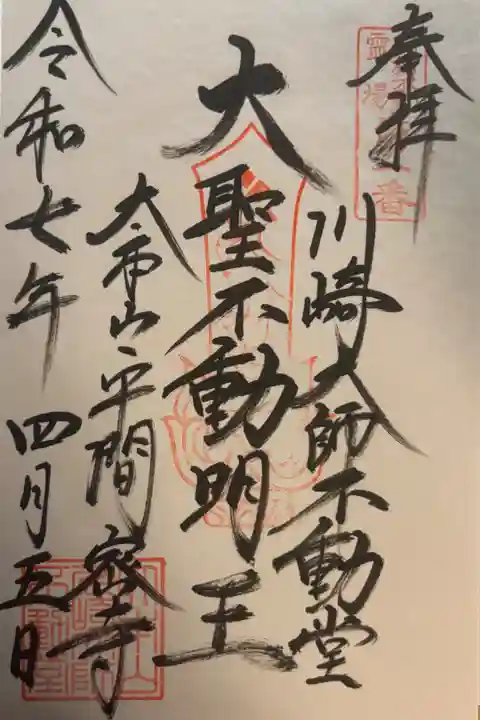 奉拝
川崎大師不動堂
大聖不動明王
大本山平間密寺
令和七年四月五日